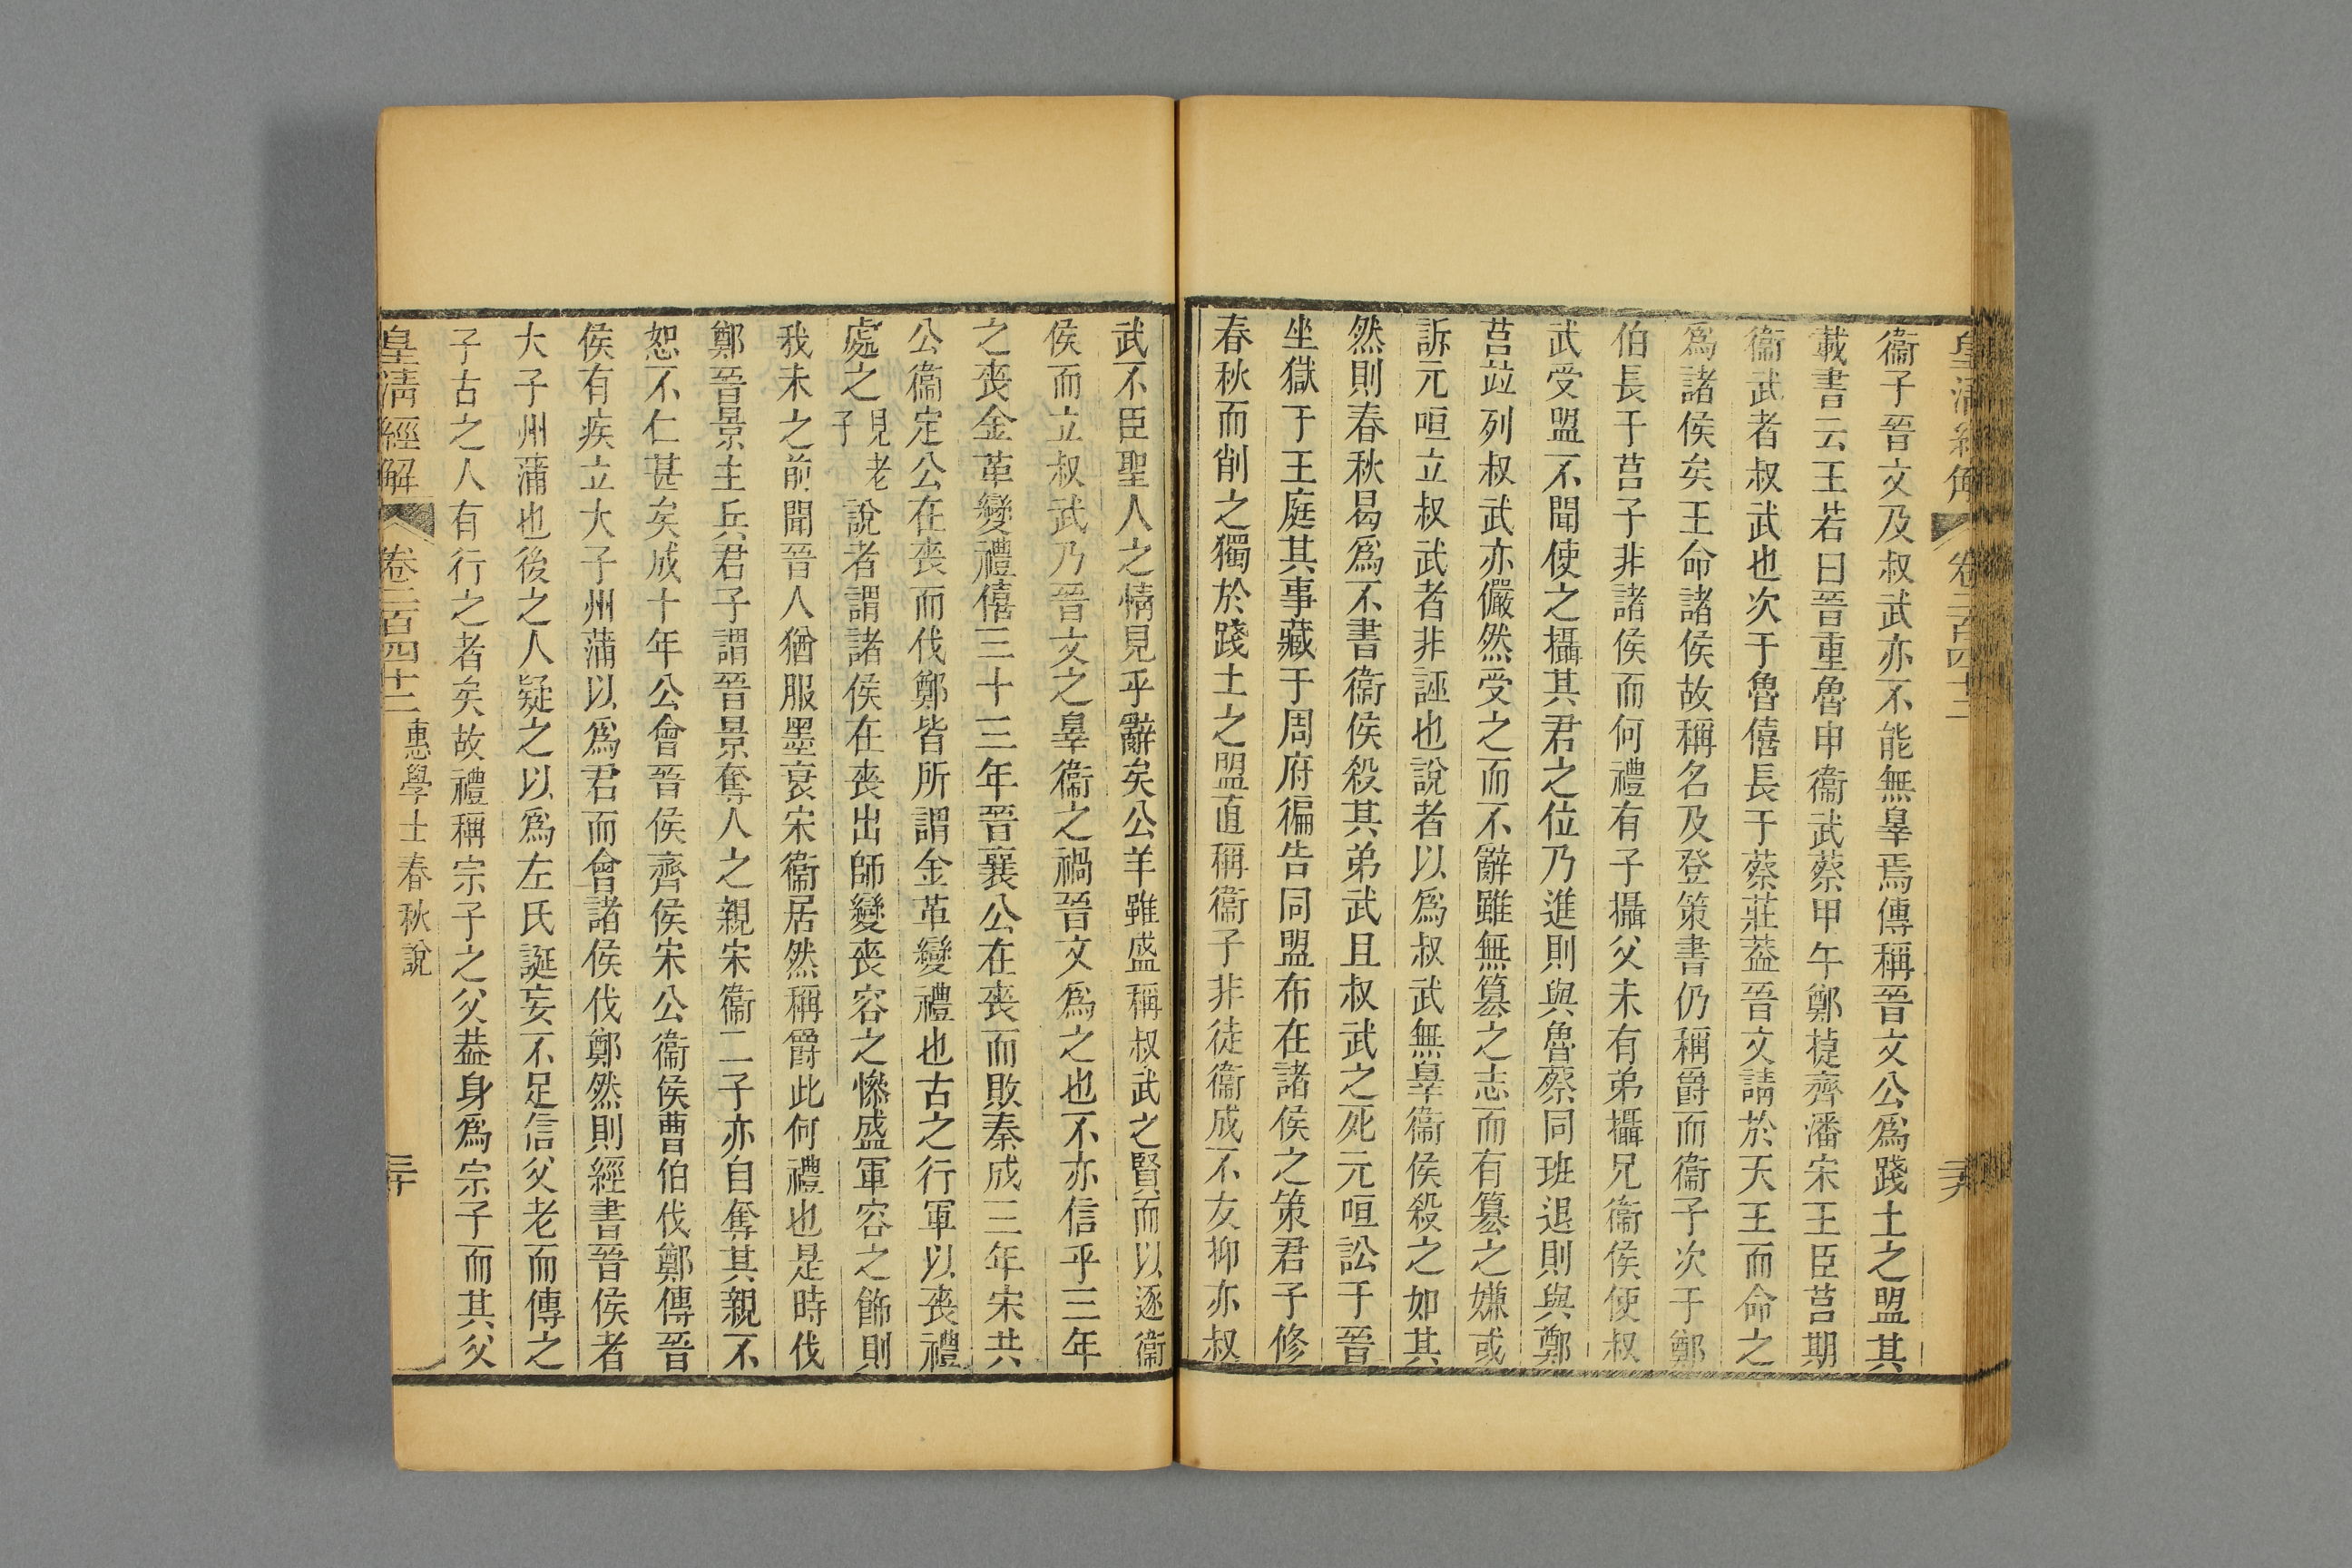 衞子晉文及叔武亦不能無辠焉傳稱晉文公爲踐土之盟其
載書云王若曰晉重魯申衞武蔡甲午鄭捷齊潘宋王臣莒期
衞武者叔武也次于魯僖長于蔡莊葢晉文請於天王而命之
爲諸侯矣王命諸侯故稱名及登策書仍稱爵而衞子次于鄭
伯長于莒子非諸侯而何禮有子攝父未有弟攝兄衞侯使叔
武受盟不聞使之攝其君之位乃進則與魯蔡同班退則與鄭
莒竝列叔武亦儼然受之而不辭雖無篡之志而有篡之嫌或
訴元咺立叔武者非誣也說者以爲叔武無辠衞侯殺之如其
然則春秋曷爲不書衞侯殺其弟武且叔武之死元咺訟于晉
坐獄于王庭其事藏于周府徧告同盟布在諸侯之策君子修
春秋而削之獨於踐土之盟直稱衞子非徒衞成不友抑亦叔
武不臣聖人之情見乎辭矣公羊雖盛稱叔武之賢而以逐衞
侯而立叔武乃晉文之辠衞之禍晉文爲之也不亦信乎三年
之喪金革變禮僖三十三年晉襄公在喪而敗秦成三年宋共
公衞定公在喪而伐鄭皆所謂金革變禮也古之行軍以喪禮
處之見老子說者謂諸侯在喪出師變喪容之慘盛軍容之飾則
我未之前聞晉人猶服墨衰宋衞居然稱爵此何禮也是時伐
鄭晉景主兵君子謂晉景奪人之親宋衞二子亦自奪其親不
恕不仁甚矣成十年公會晉侯齊侯宋公衞侯曹伯伐鄭傳晉
侯有疾立大子州蒲以爲君而會諸侯伐鄭然則經書晉侯者
大子州蒲也後之人疑之以爲左氏誕妄不足信父老而傳之
子古之人有行之者矣故禮稱宗子之父葢身爲宗子而其父
皇淸經解 卷二百四十二 惠學士春秋說 三十